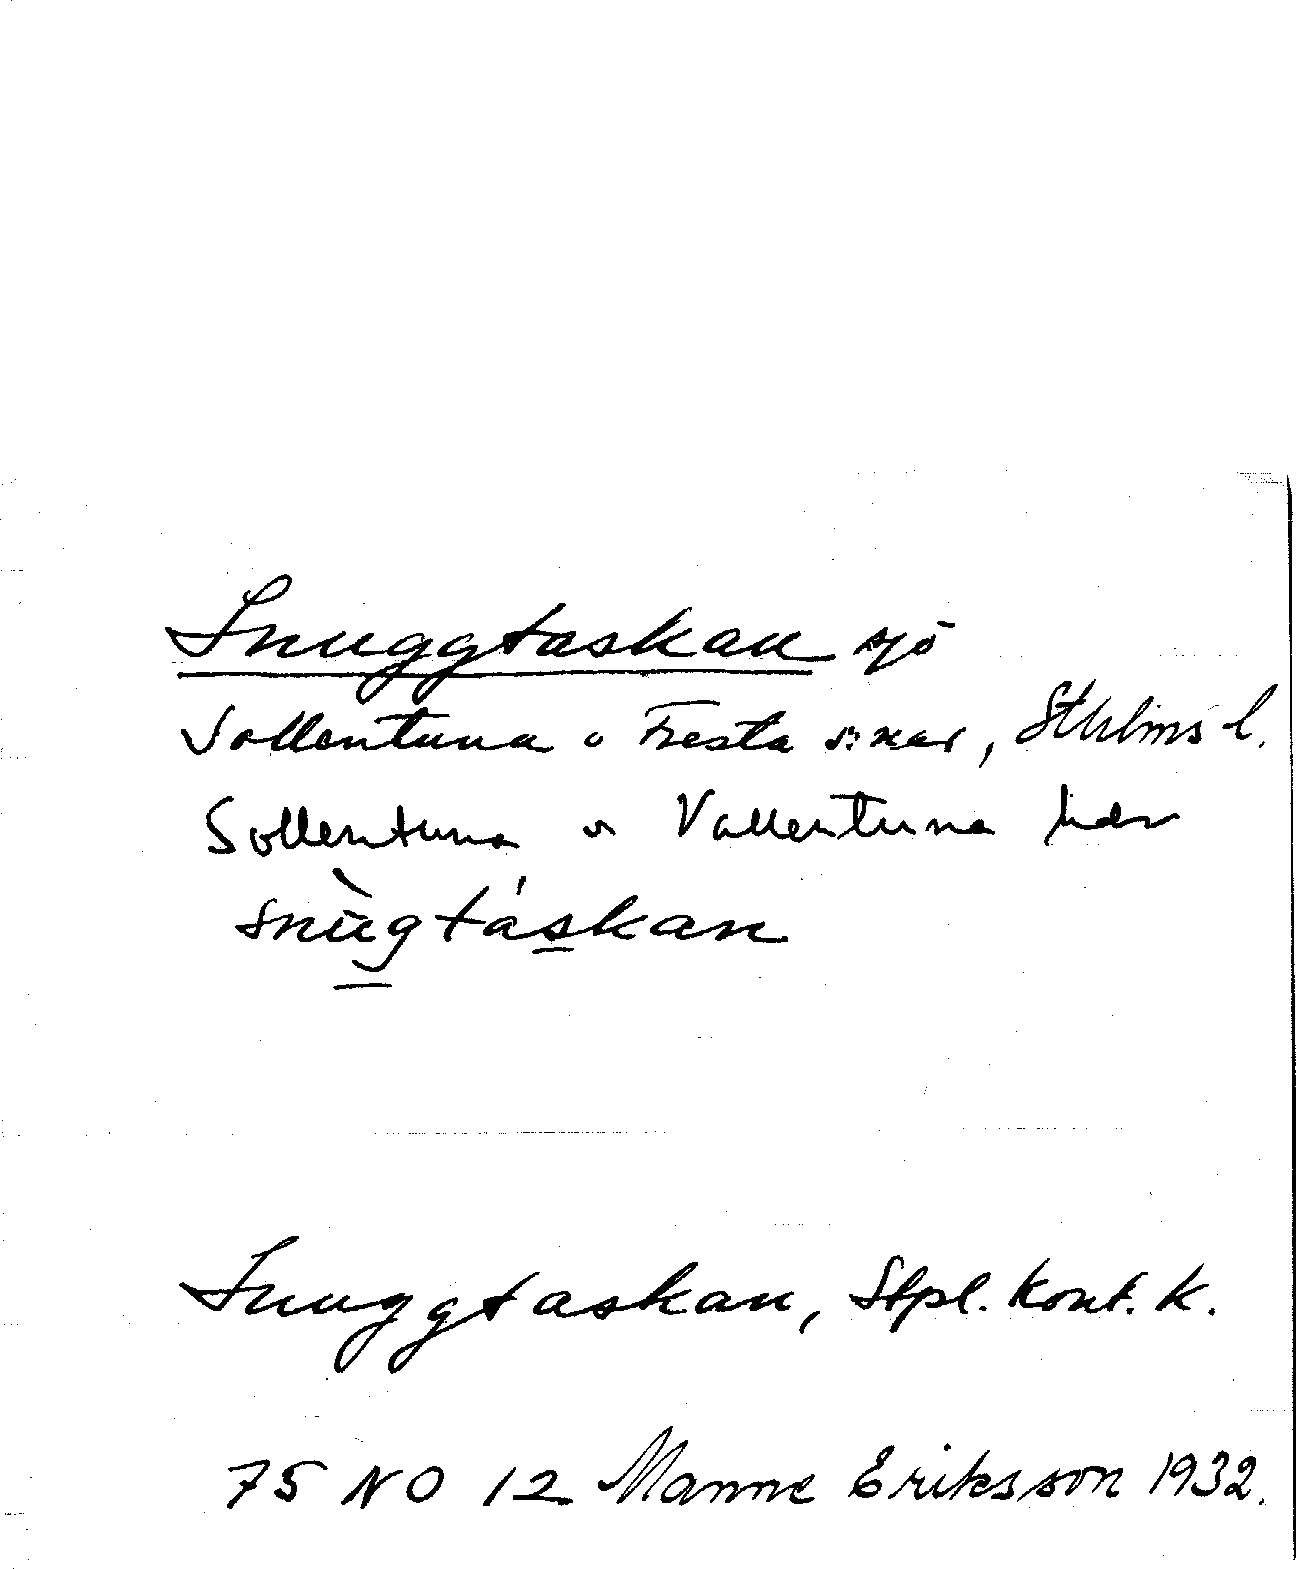 Snuggtaskan sjö
Sollentuna o Fresta s:nar, Sthlms l.
Sollentuna o Vallentuna hdr
snùgtáskan
Snuggtaskan, Stpl. Kont. k.
75 NO 12 Manne Eriksson 1932.